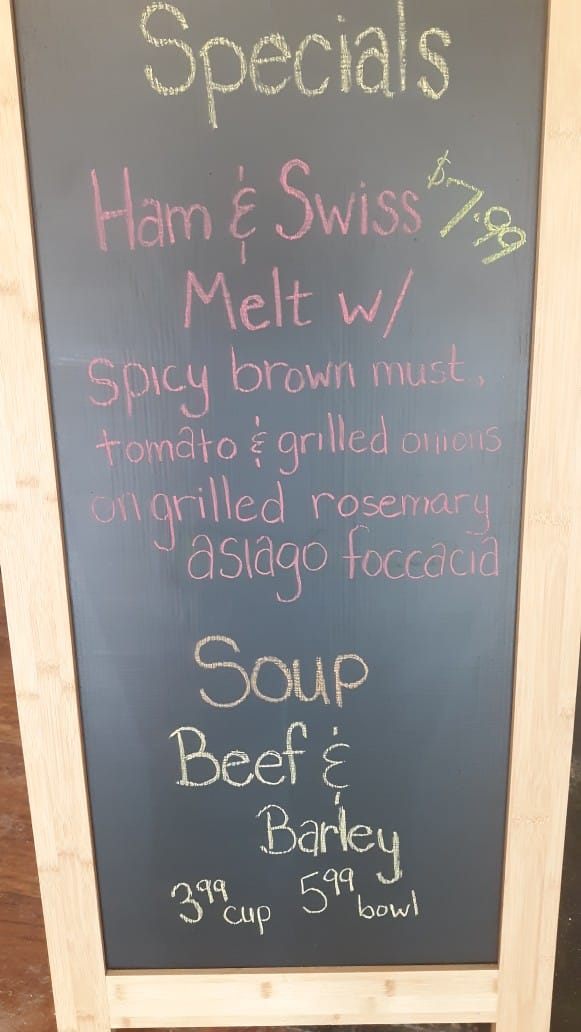 Specials
Ham & Swiss $7.99
Melt w/
spicy brown must.
tomato & grilled onions
on grilled rosemary
asiago foccacia
Soup
Beef &
Barley
3.99 cup 5.99 bowl